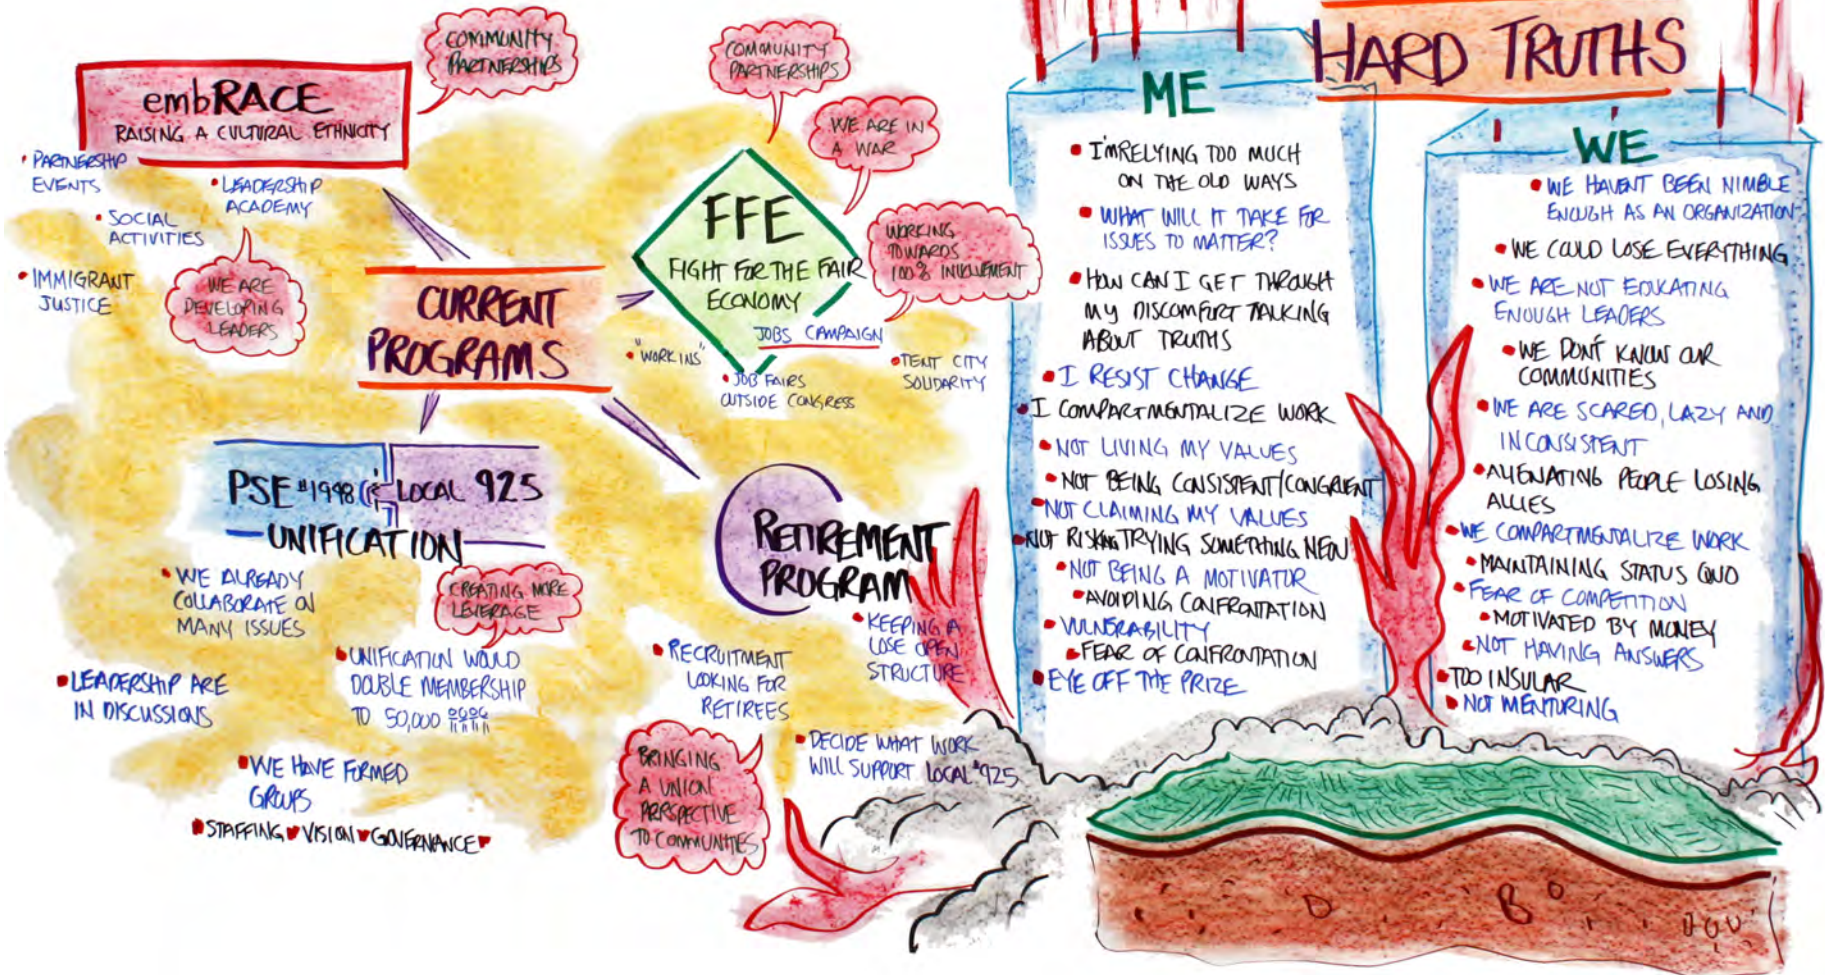 embRACE
RAISING A CULTURAL ETHNICITY
COMMUNITY
PARTNERSHIPS
• PARTNERSHIP
EVENTS
• LEADERSHIP
ACADEMY
• SOCIAL
ACTIVITIES
• IMMIGRANT
JUSTICE
WE ARE
DEVELOPING
LEADERS
CURRENT
PROGRAMS
COMMUNITY
PARTNERSHIPS
WE ARE IN
A WAR
FFE
FIGHT FOR THE FAIR
ECONOMY
WORKING
TOWARDS
100% INVOLVEMENT
JOBS CAMPAIGN
• "WORK INS"
• JOB FAIRS
OUTSIDE CONGRESS
• TENT CITY
SOLIDARITY
PSE #1948
LOCAL 925
UNIFICATION
• WE ALREADY
COLLABORATE ON
MANY ISSUES
CREATING MORE
LEVERAGE
• UNIFICATION WOULD
DOUBLE MEMBERSHIP
TO 50,000
• LEADERSHIP ARE
IN DISCUSSIONS
• WE HAVE FORMED
GROUPS
STAFFING VISION GOVERNANCE
RETIREMENT
PROGRAM
• KEEPING A
LOSE OPEN
STRUCTURE
• RECRUITMENT
LOOKING FOR
RETIREES
• DECIDE WHAT WORK
WILL SUPPORT LOCAL #925
BRINGING
A UNION
PERSPECTIVE
TO COMMUNITIES
HARD TRUTHS
ME
• I'M RELYING TOO MUCH
ON THE OLD WAYS
• WHAT WILL IT TAKE FOR
ISSUES TO MATTER?
• HOW CAN I GET THROUGH
MY DISCOMFORT TALKING
ABOUT TRUTHS
• I RESIST CHANGE
• I COMPARTMENTALIZE WORK
• NOT LIVING MY VALUES
• NOT BEING CONSISTENT/CONGRUENT
• NOT CLAIMING MY VALUES
• NOT RISKING TRYING SOMETHING NEW
• NOT BEING A MOTIVATOR
• AVOIDING CONFRONTATION
• VULNERABILITY
• FEAR OF CONFRONTATION
• EYE OFF THE PRIZE
WE
• WE HAVENT BEEN NIMBLE
ENOUGH AS AN ORGANIZATION
• WE COULD LOSE EVERYTHING
• WE ARE NOT EDUCATING
ENOUGH LEADERS
• WE DON'T KNOW OUR
COMMUNITIES
• WE ARE SCARED, LAZY AND
INCONSISTENT
• ALIENATING PEOPLE LOSING
ALLIES
• WE COMPARTMENTALIZE WORK
• MAINTAINING STATUS QUO
• FEAR OF COMPETITION
• MOTIVATED BY MONEY
• NOT HAVING ANSWERS
• TOO INSULAR
• NOT MENTORING